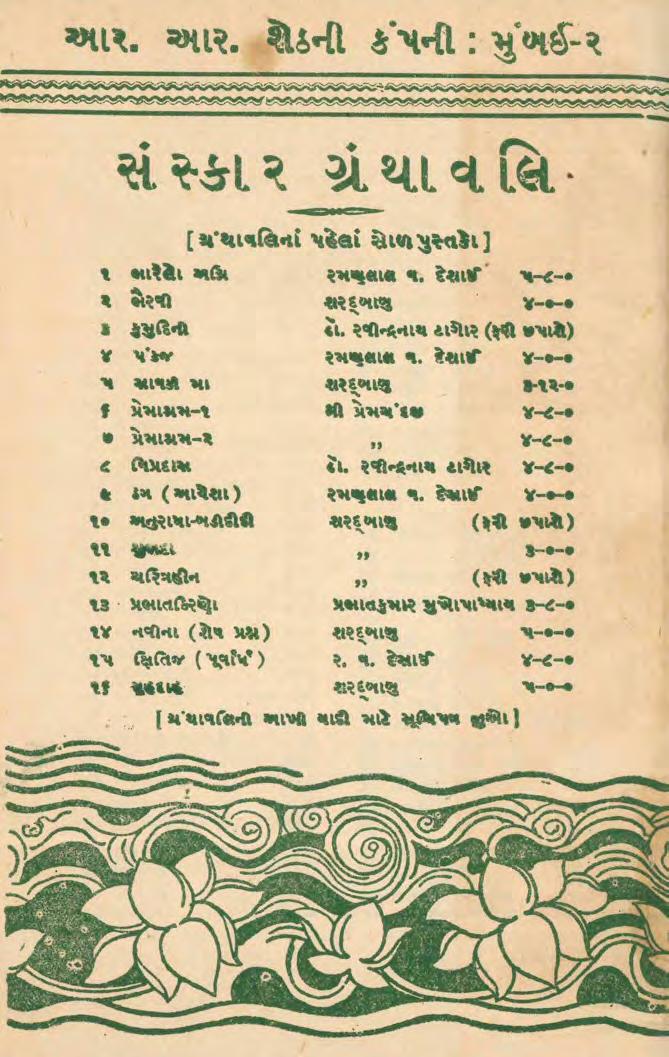 આર. આર. શેઠની કંપની : મુંબઈ-૨
સંસ્કાર ગ્રંથાવલિ.
[ ગ્રંથાવલિનાં પહેલાં સોળ પુસ્તકો ]
૧ ભારેલો અગ્નિ રમણલાલ વ. દેસાઈ ૫-૮-૦
૨ ભૈરવી શરદ્‌બાબુ ૪-૦-૦
૩ કુમુદિની ડૉ. રવીન્દ્રનાથ ટાગોર (ફરી છપાશે)
૪ પંકજ રમણલાલ વ. દેસાઈ ૪-૦-૦
૫ સાવકી મા શરદ્‌બાબુ ૩-૧૨-૦
૬ પ્રેમાશ્રમ-૧ શ્રી પ્રેમચંદજી ૪-૮-૦
૭ પ્રેમાશ્રમ-૨ ,, ૪-૮-૦
૮ વિપ્રદાસ ડૉ. રવીન્દ્રનાથ ટાગોર ૪-૮-૦
૯ ઠગ ( આયેશા ) રમણલાલ વ. દેસાઈ ૪-૦-૦
૧૦ અનુરાધા-બડીદીદી શરદ્‌બાબુ (ફરી છપાશે)
૧૧ શુભદા ,, ૩-૦-૦
૧૨ ચરિત્રહીન ,, (ફરી છપાશે)
૧૩ પ્રભાતકિરણો પ્રભાતકુમાર મુખોપાધ્યાય ૩-૮-૦
૧૪ નવીના (શેષ પ્રશ્ન) શરદ્‌બાબુ ૫-૦-૦
૧૫ ક્ષિતિજ ( પૂર્વાર્ધ ) ર. વ. દેસાઈ ૪-૮-૦
૧૬ ગૃહદાહ શરદ્‌બાબુ ૫-૦-૦
[ ગ્રંથાવલિની આખી યાદી માટે સૂચિપત્ર જુઓ ]